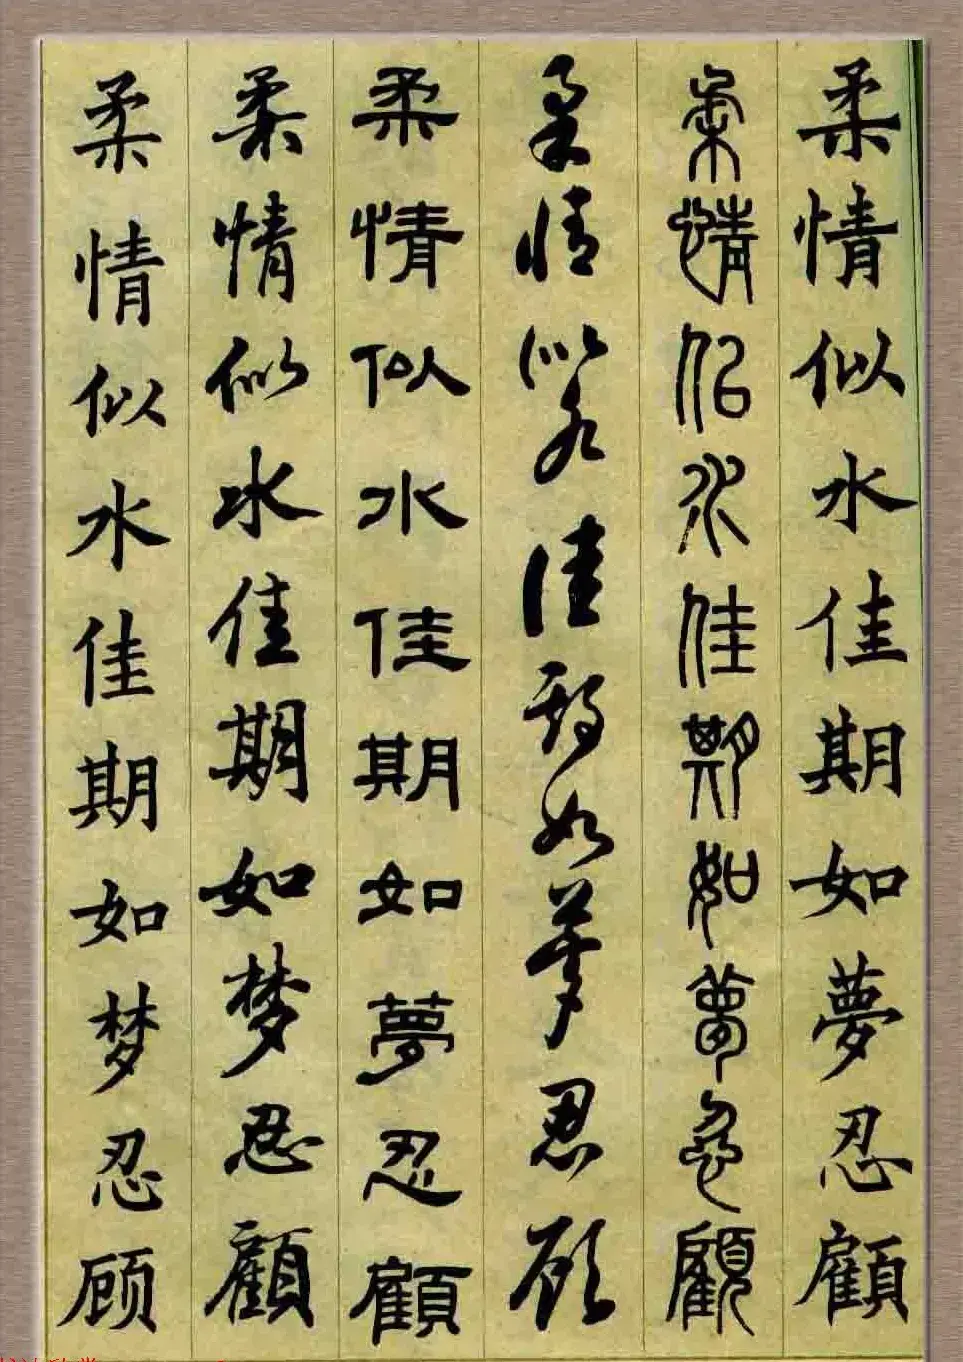 柔情似水佳期如夢忍顧
柔情似水佳期如夢忍顧
柔情似水佳期如夢忍顧
柔情似水佳期如夢忍顧
柔情似水佳期如梦忍顧
柔情似水佳期如梦忍顾